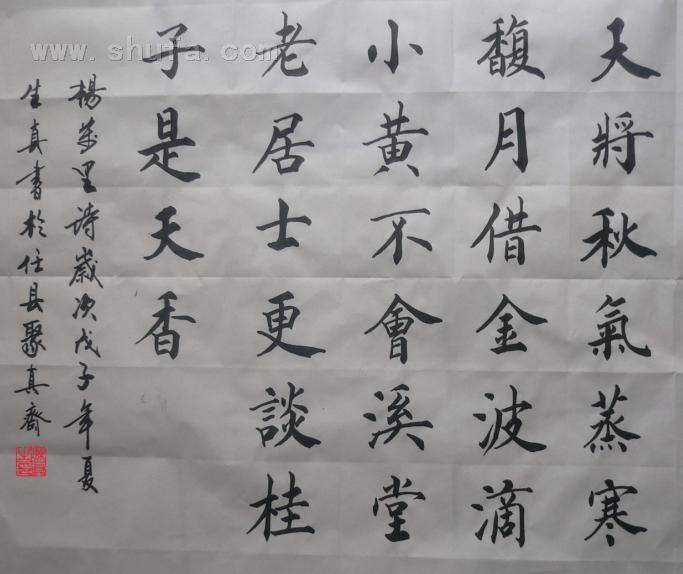 天將秋氣蒸寒
馥月借金波滴
小黃不會溪堂
老居士更談桂
子是天香
楊萬里詩歲次戊子年夏
生真書於任县聚真齋
www.shufa.com